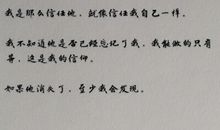 我是那么信任他，就像信任我自己一样。
我不知道她是否已经忘记了我，我能做的只有
等，这是我的信仰。
如果他消失了，至少我会发现。